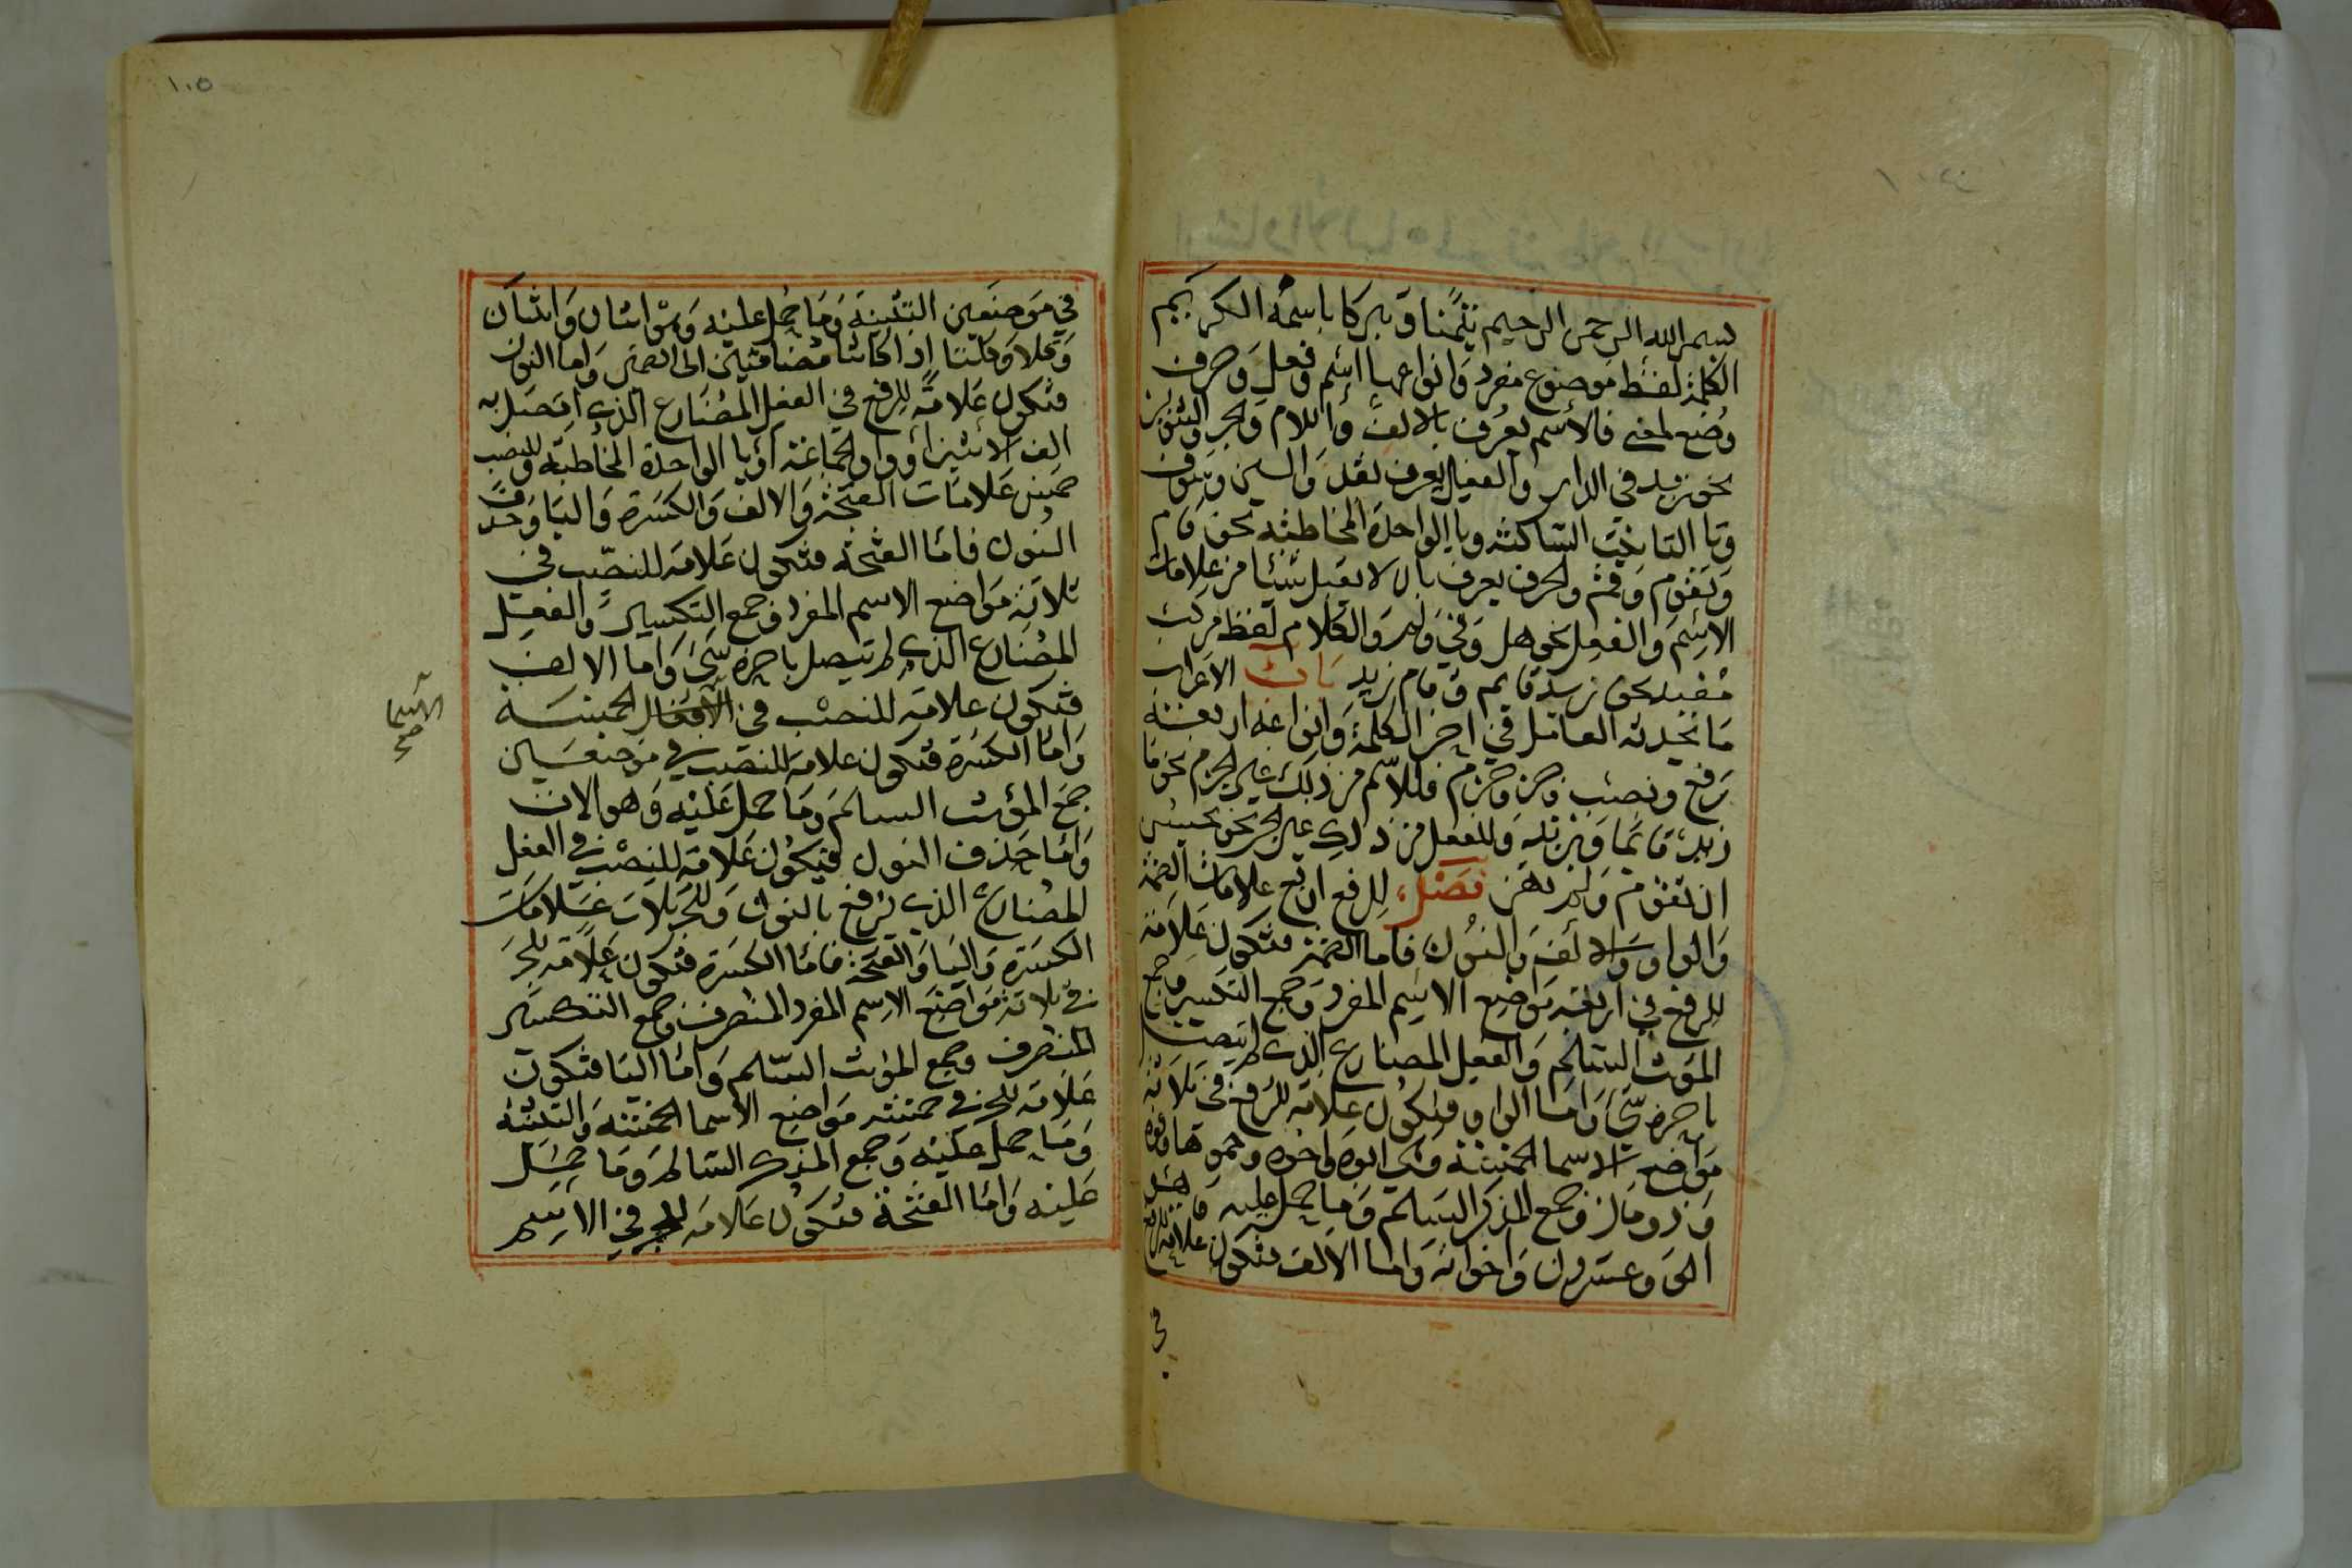 بسم الله الرحمن الرحيم تيمنا وتبركا باسمه الكريم
الكلمة لفظ موضوع مفرد وانواعها اسم وفعل وحرف
وضع لمعنى فالاسم يعرف بالالف واللام والجر والتنوين
نحو زيد في الدار والفعل يعرف بقد والسين وسوف
وتا التانيث الساكنة ويا الواحدة المخاطبة نحو قام
وتقوم وقم والحرف يعرف بان لا يقبل شيئا من علامات
الاسم والفعل نحو هل وفي ولم والكلام لفظ مركب
مفيد نحو زيد قايم وقام زيد باب الاعراب
ما يحدثه العامل في اخر الكلمة وانواعه اربعة
رفع ونصب وجر وجزم فللاسم من ذلك غير الجزم نحو ما
زيد قائما وبزيد وللفعل من ذلك غير الجر نحو
ان تقوم ولم فصل للرفع اربع علامات الضمة
والواو والالف والنون فاما الضمة فتكون علامة
للرفع في اربعة مواضع الاسم المفرد وجمع التكسير وجمع
المونث السالم والفعل المضارع الذي لم يتصل
باخره شي واما الواو فتكون علامة للرفع في ثلاثة
مواضع الاسما الخمسة وهي ابوه واخوه وحموها وفوه
وذو مال وجمع المذكر السالم وما حمل عليه
الى وعشرون واخواته واما الالف فتكون علامة للرفع
في
١٠٥
في موضعين التثنية وما حمل عليه وهو اثنان واثنتان
وكلا وكلتا اذا كانتا مضافتين الى الضمير واما النون
فتكون علامة للرفع في الفعل المضارع الذي اتصل به
الف الاثنين او واو الجماعة او يا الواحدة المخاطبة وللنصب
خمس علامات الفتحة والالف والكسرة واليا وحذف
النون فاما الفتحة فتكون علامة للنصب في
ثلاثة مواضع الاسم المفرد وجمع التكسير والفعل
المضارع الذي لم يتصل باخره شي واما الالف
فتكون علامة للنصب في الافعال الخمسة
الاسما صح
واما الكسرة فتكون علامة للنصب في موضعين
جمع المؤنث السالم وما حمل عليه وهو الات
واما حذف النون فيكون علامة للنصب في الفعل
المضارع الذي يرفع بالنون وللجر ثلاث علامات
الكسرة واليا والفتحة فاما الكسرة فتكون علامة للجر
في ثلاثة مواضع الاسم المفرد المنصرف وجمع التكسير
المنصرف وجمع المونث السالم واما اليا فتكون
علامة للجر في خمسة مواضع الاسما الخمسة والتثنية
وما حمل عليه وجمع المذكر السالم وما حمل
عليه واما الفتحة فتكون علامة للجر في الاسم